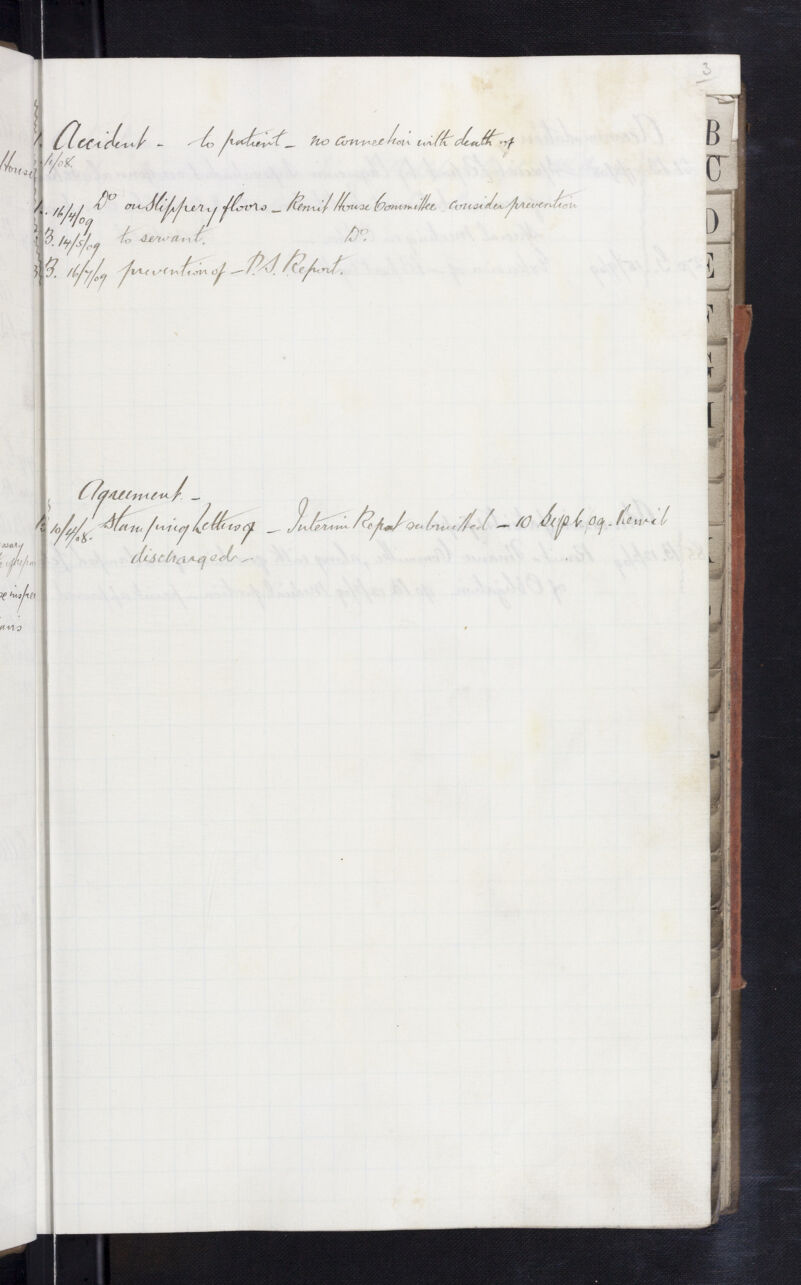 3
Accident - to patient - no connection with death of
/08
16/4/09 Do on Slippery floors - Remit House Committee consider prevention
B. 14/5/09 to servant. Do.
B. 16/7/09 prevention of - P.S. Report.
Agreement -
10/4/08. Stamping Letters of - Interim Report submitted - 10 Sept 09. Remit
discharged -
House
B
C
D
E
F
G